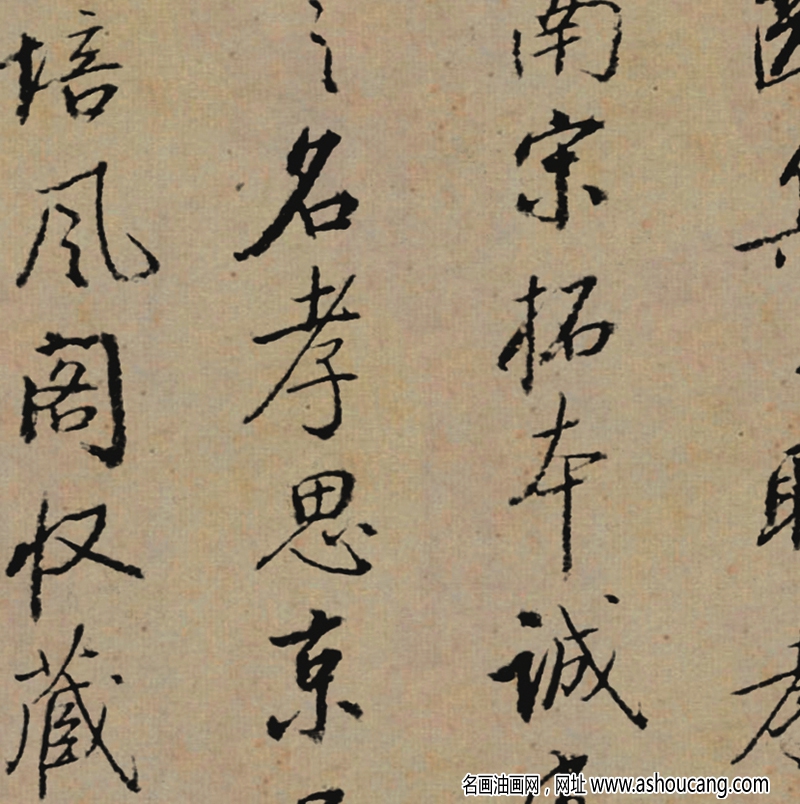 南宋拓本誠
之名孝思京
培风阁收藏
名画油画网，网址 www.ashoucang.com